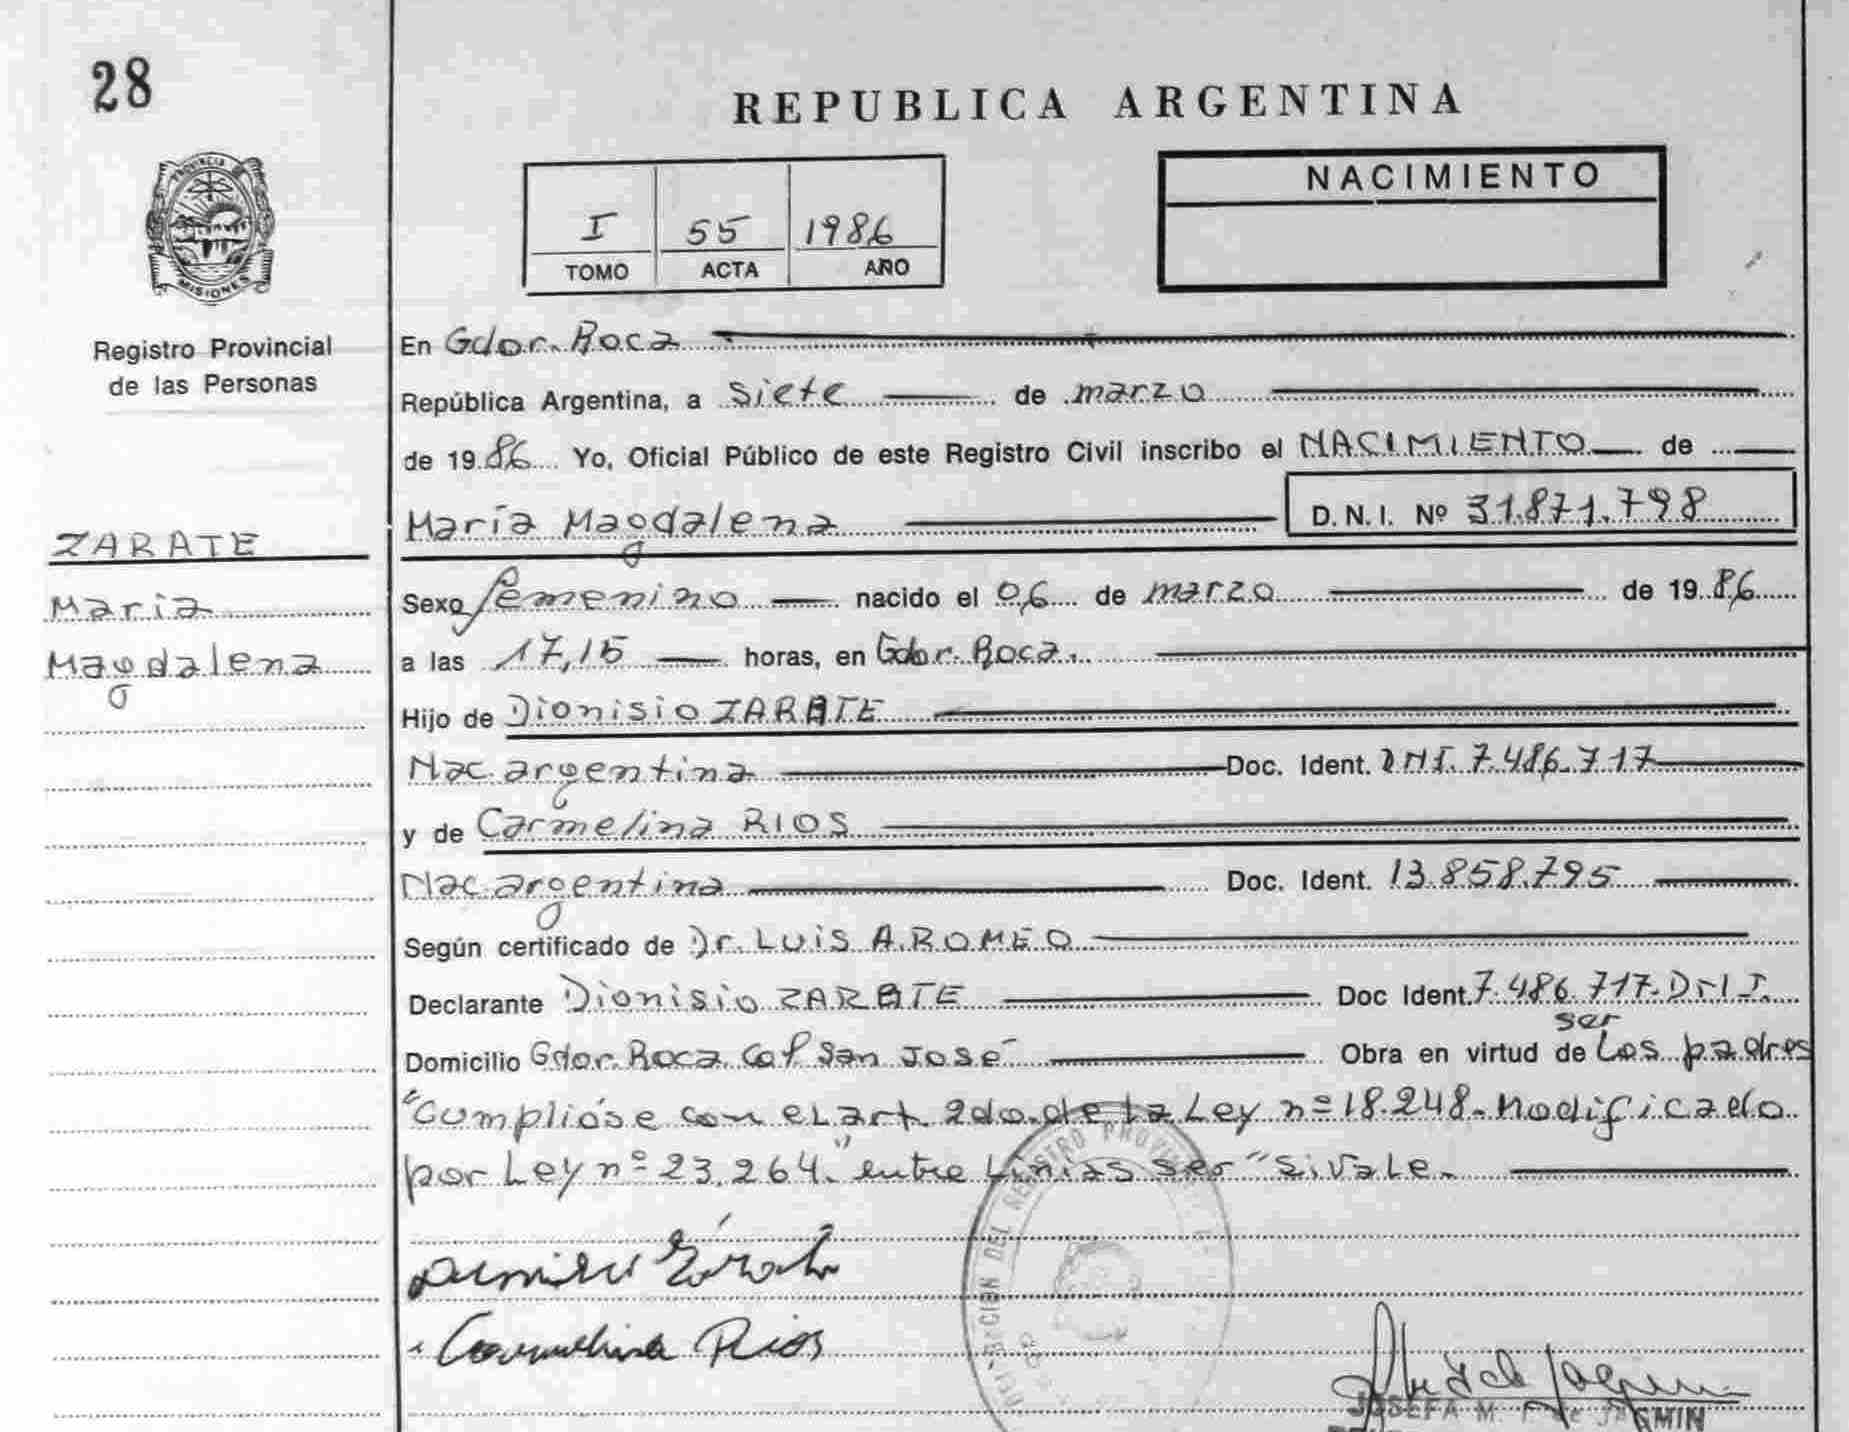 28
REPUBLICA ARGENTINA
PROVINCIA
MISIONES
I 55 1986
TOMO ACTA AÑO
NACIMIENTO
Registro Provincial
de las Personas
En Gdor. Roca
República Argentina, a siete de marzo
de 19 86 Yo, Oficial Público de este Registro Civil inscribo el NACIMIENTO de
María Magdalena D.N.I. Nº 31.871.798
ZARATE
Maria
Magdalena
Sexo femenino nacido el 06 de marzo de 19 86
a las 17,15 horas, en Gdor. Roca.
Hijo de Dionisio ZARATE
Nac. argentina Doc. Ident. DNI. 7.486.717
y de Carmelina RIOS
Nac. argentina Doc. Ident. 13.858.795
Según certificado de Dr. LUIS A. ROMEO
Declarante Dionisio ZARATE Doc Ident. 7.486.717. DNI.
ser
Domicilio Gdor. Roca. Col San José Obra en virtud de Los padres
"Cumplióse con el art. 2do. de la Ley nº 18.248. Modificado
por Ley nº 23.264." entre Linias ser "Si Vale.
DEL REGISTRO PROVIN
Carmelina Rios
JOSEFA M. de JAGMIN